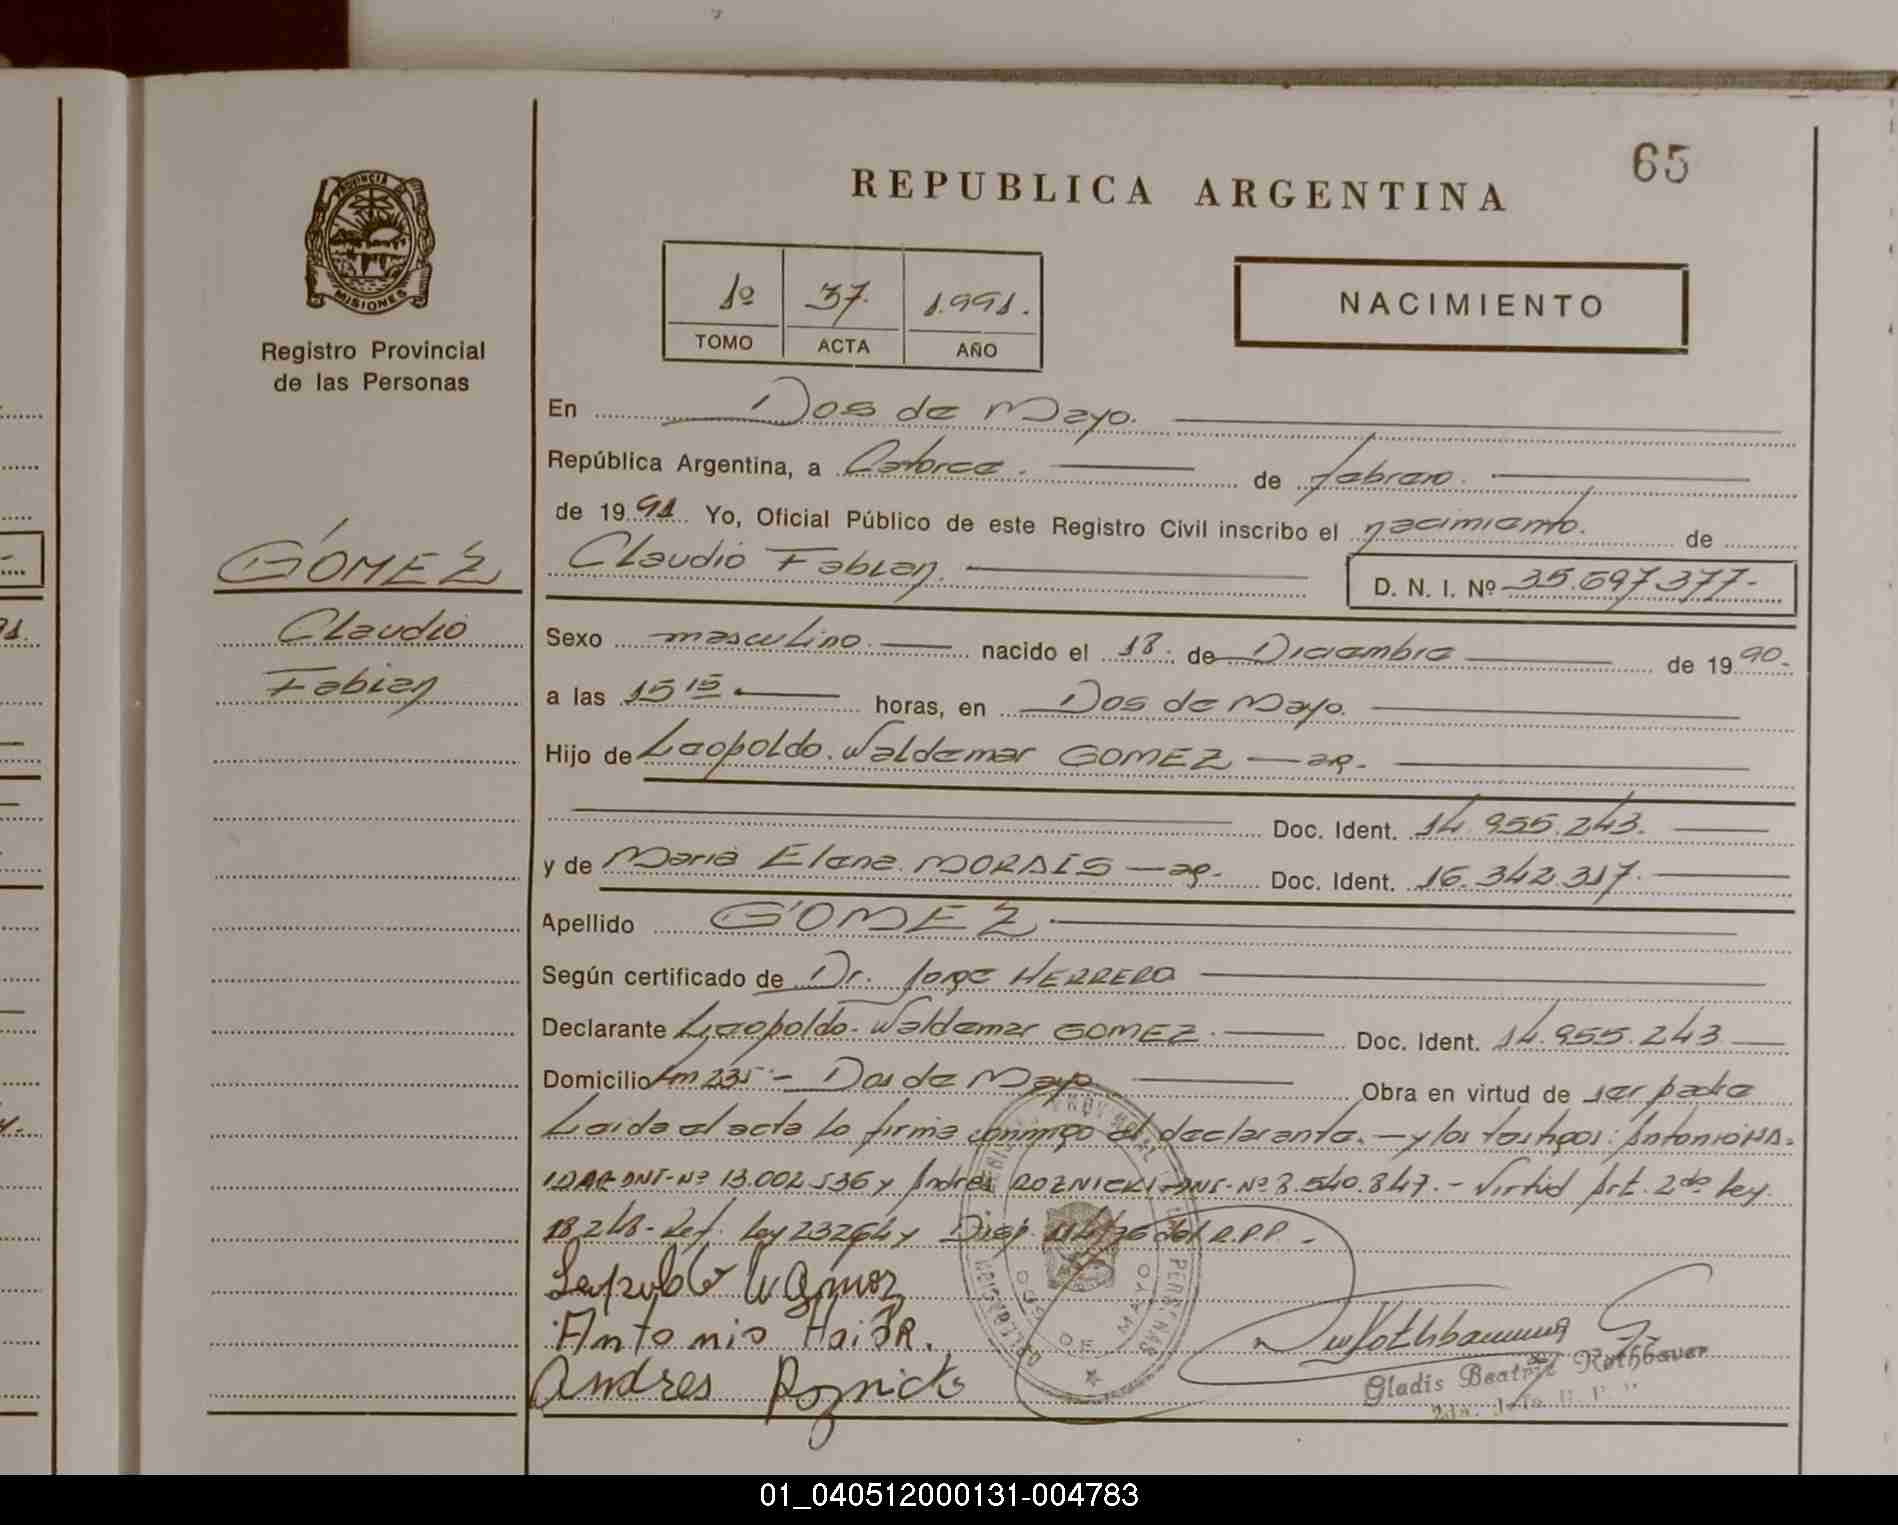 65
REPUBLICA ARGENTINA
PROVINCIA DE
MISIONES
Registro Provincial
de las Personas
1º 37. 1.991.
TOMO ACTA AÑO
NACIMIENTO
En Dos de Mayo.
República Argentina, a Catorce. de febrero.
de 1991 Yo, Oficial Público de este Registro Civil inscribo el nacimiento. de
GÓMEZ
Claudio Fabian. D. N. I. Nº 35.697.377-
Claudio
Fabian
Sexo masculino. nacido el 18. de Diciembre de 1990.
a las 15 15 horas, en Dos de Mayo.
Hijo de Leopoldo. Waldemar GOMEZ — ar.
Doc. Ident. 14.955.243.
y de Maria Elena. MORAIS — ar. Doc. Ident. 16.342.317.
Apellido GÓMEZ
Según certificado de Dr. Jorge HERRERA
Declarante Leopoldo. Waldemar GOMEZ. Doc. Ident. 14.955.243
Domicilio Km 235 - Dos de Mayo. Obra en virtud de ser padre
Leida el acta la firma conmigo el declarante. — y los testigos: Antonio HA.
IDAR DNI-Nº 13.002.536 y Andrés ROZNICKI-DNI-Nº 8.540.847. - Virtud Art. 2do Ley.
18.248 - Ref. Ley 23264 y Disp. del R.P.P -
DOS DE MAYO
Antonio HaidR.
Andres Roznicki
Gladis Beatriz Rothbauer